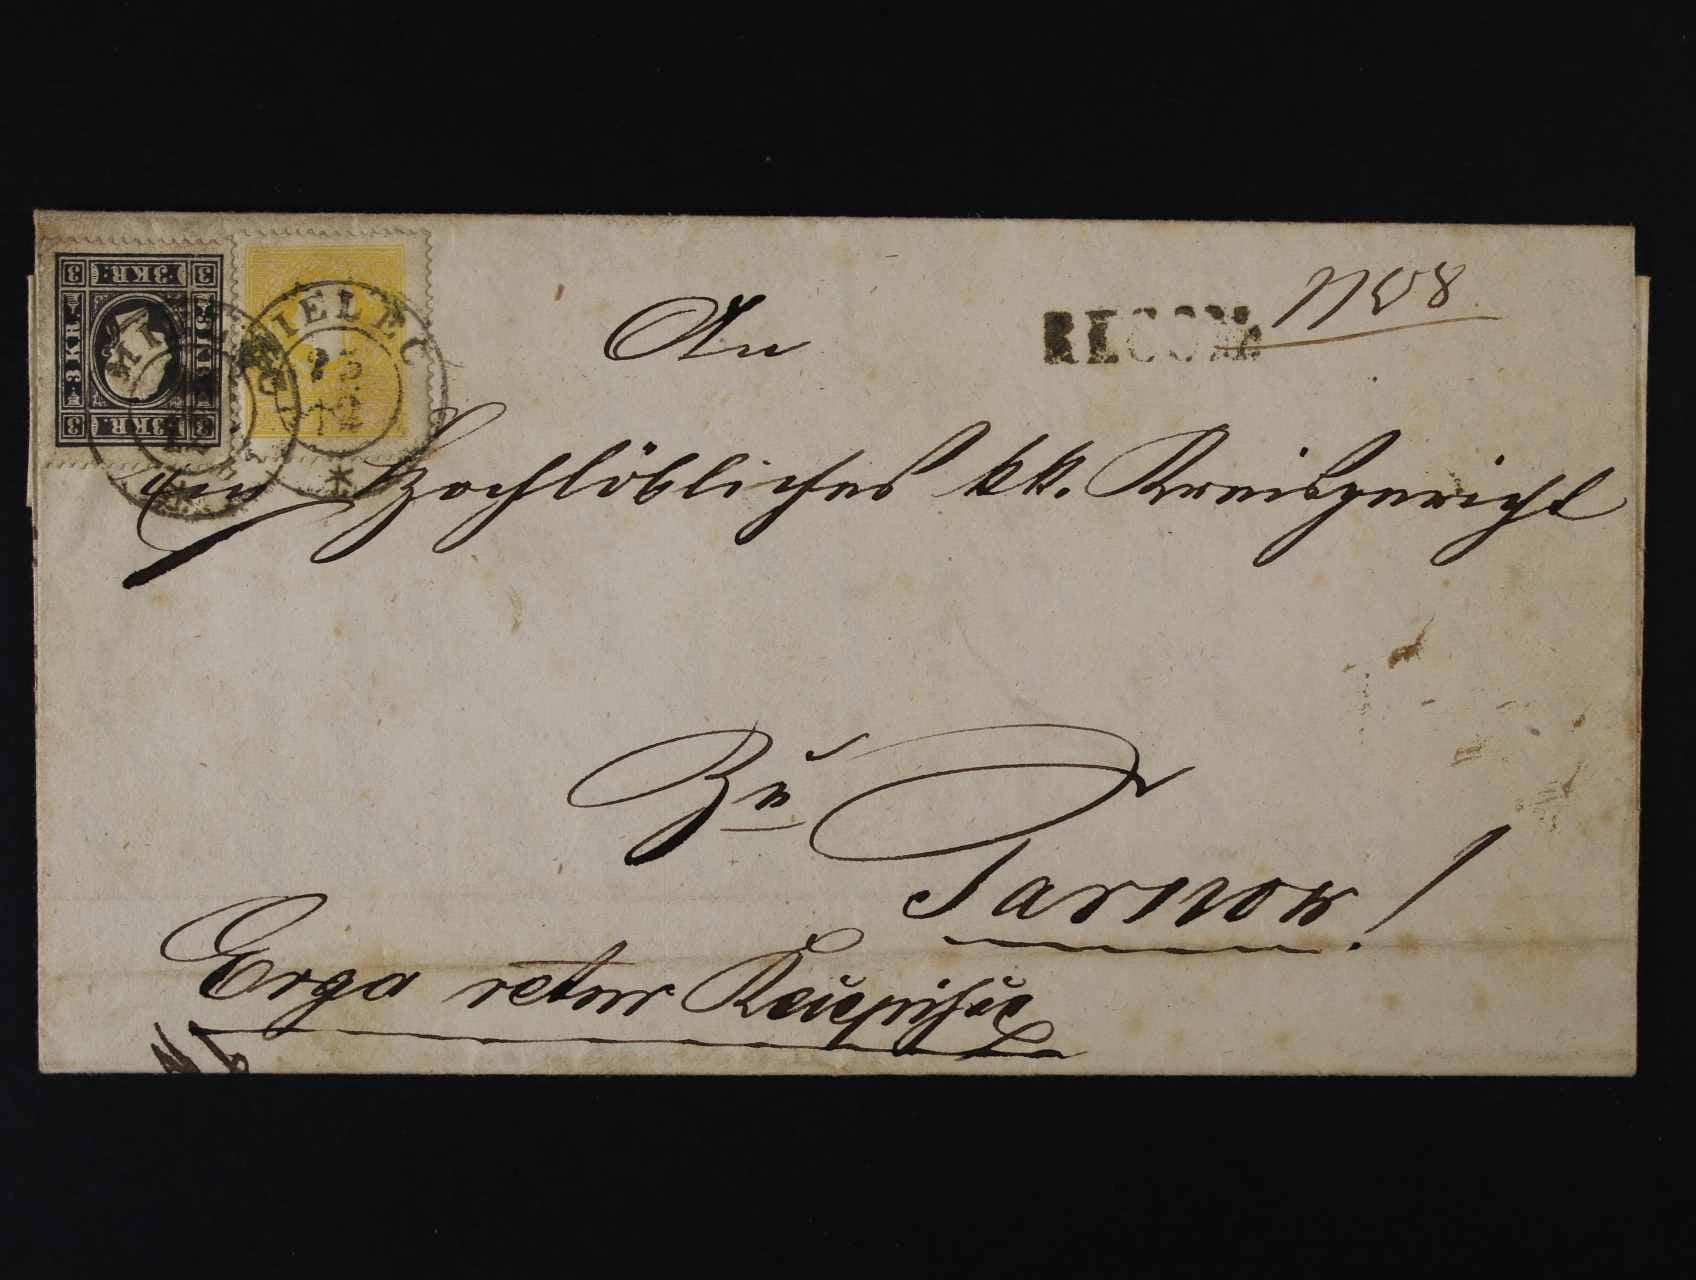 3 3KR. 3
3KR
3KR. 3
MIELEC
MIELEC
23
12
RECOM.
No 8
An
Ein Hochlöbliches kk. Kreisgericht
Zu
Tarnow!
Erga retur Recepisse